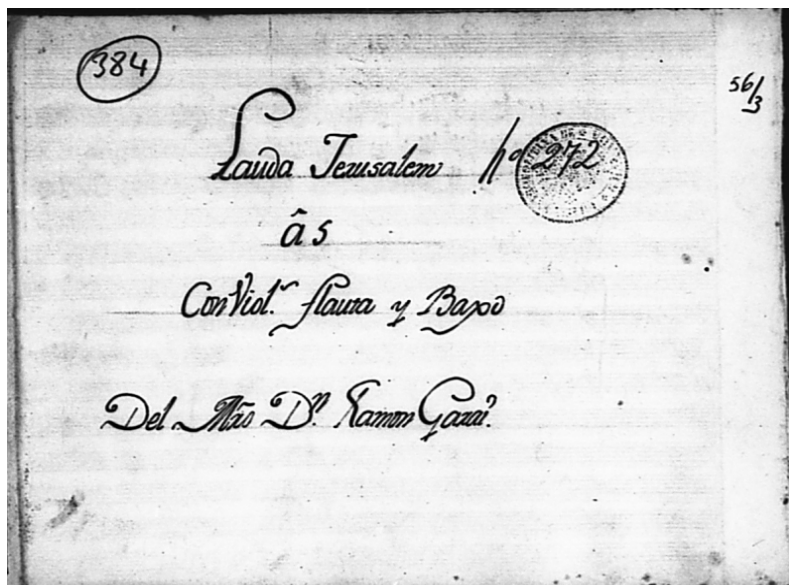 384
56/3
Lauda Jerusalem nº 272
â 5
Con Viol.ˢ flauta y Baxo
Del Mro D.ⁿ Ramon Garai.